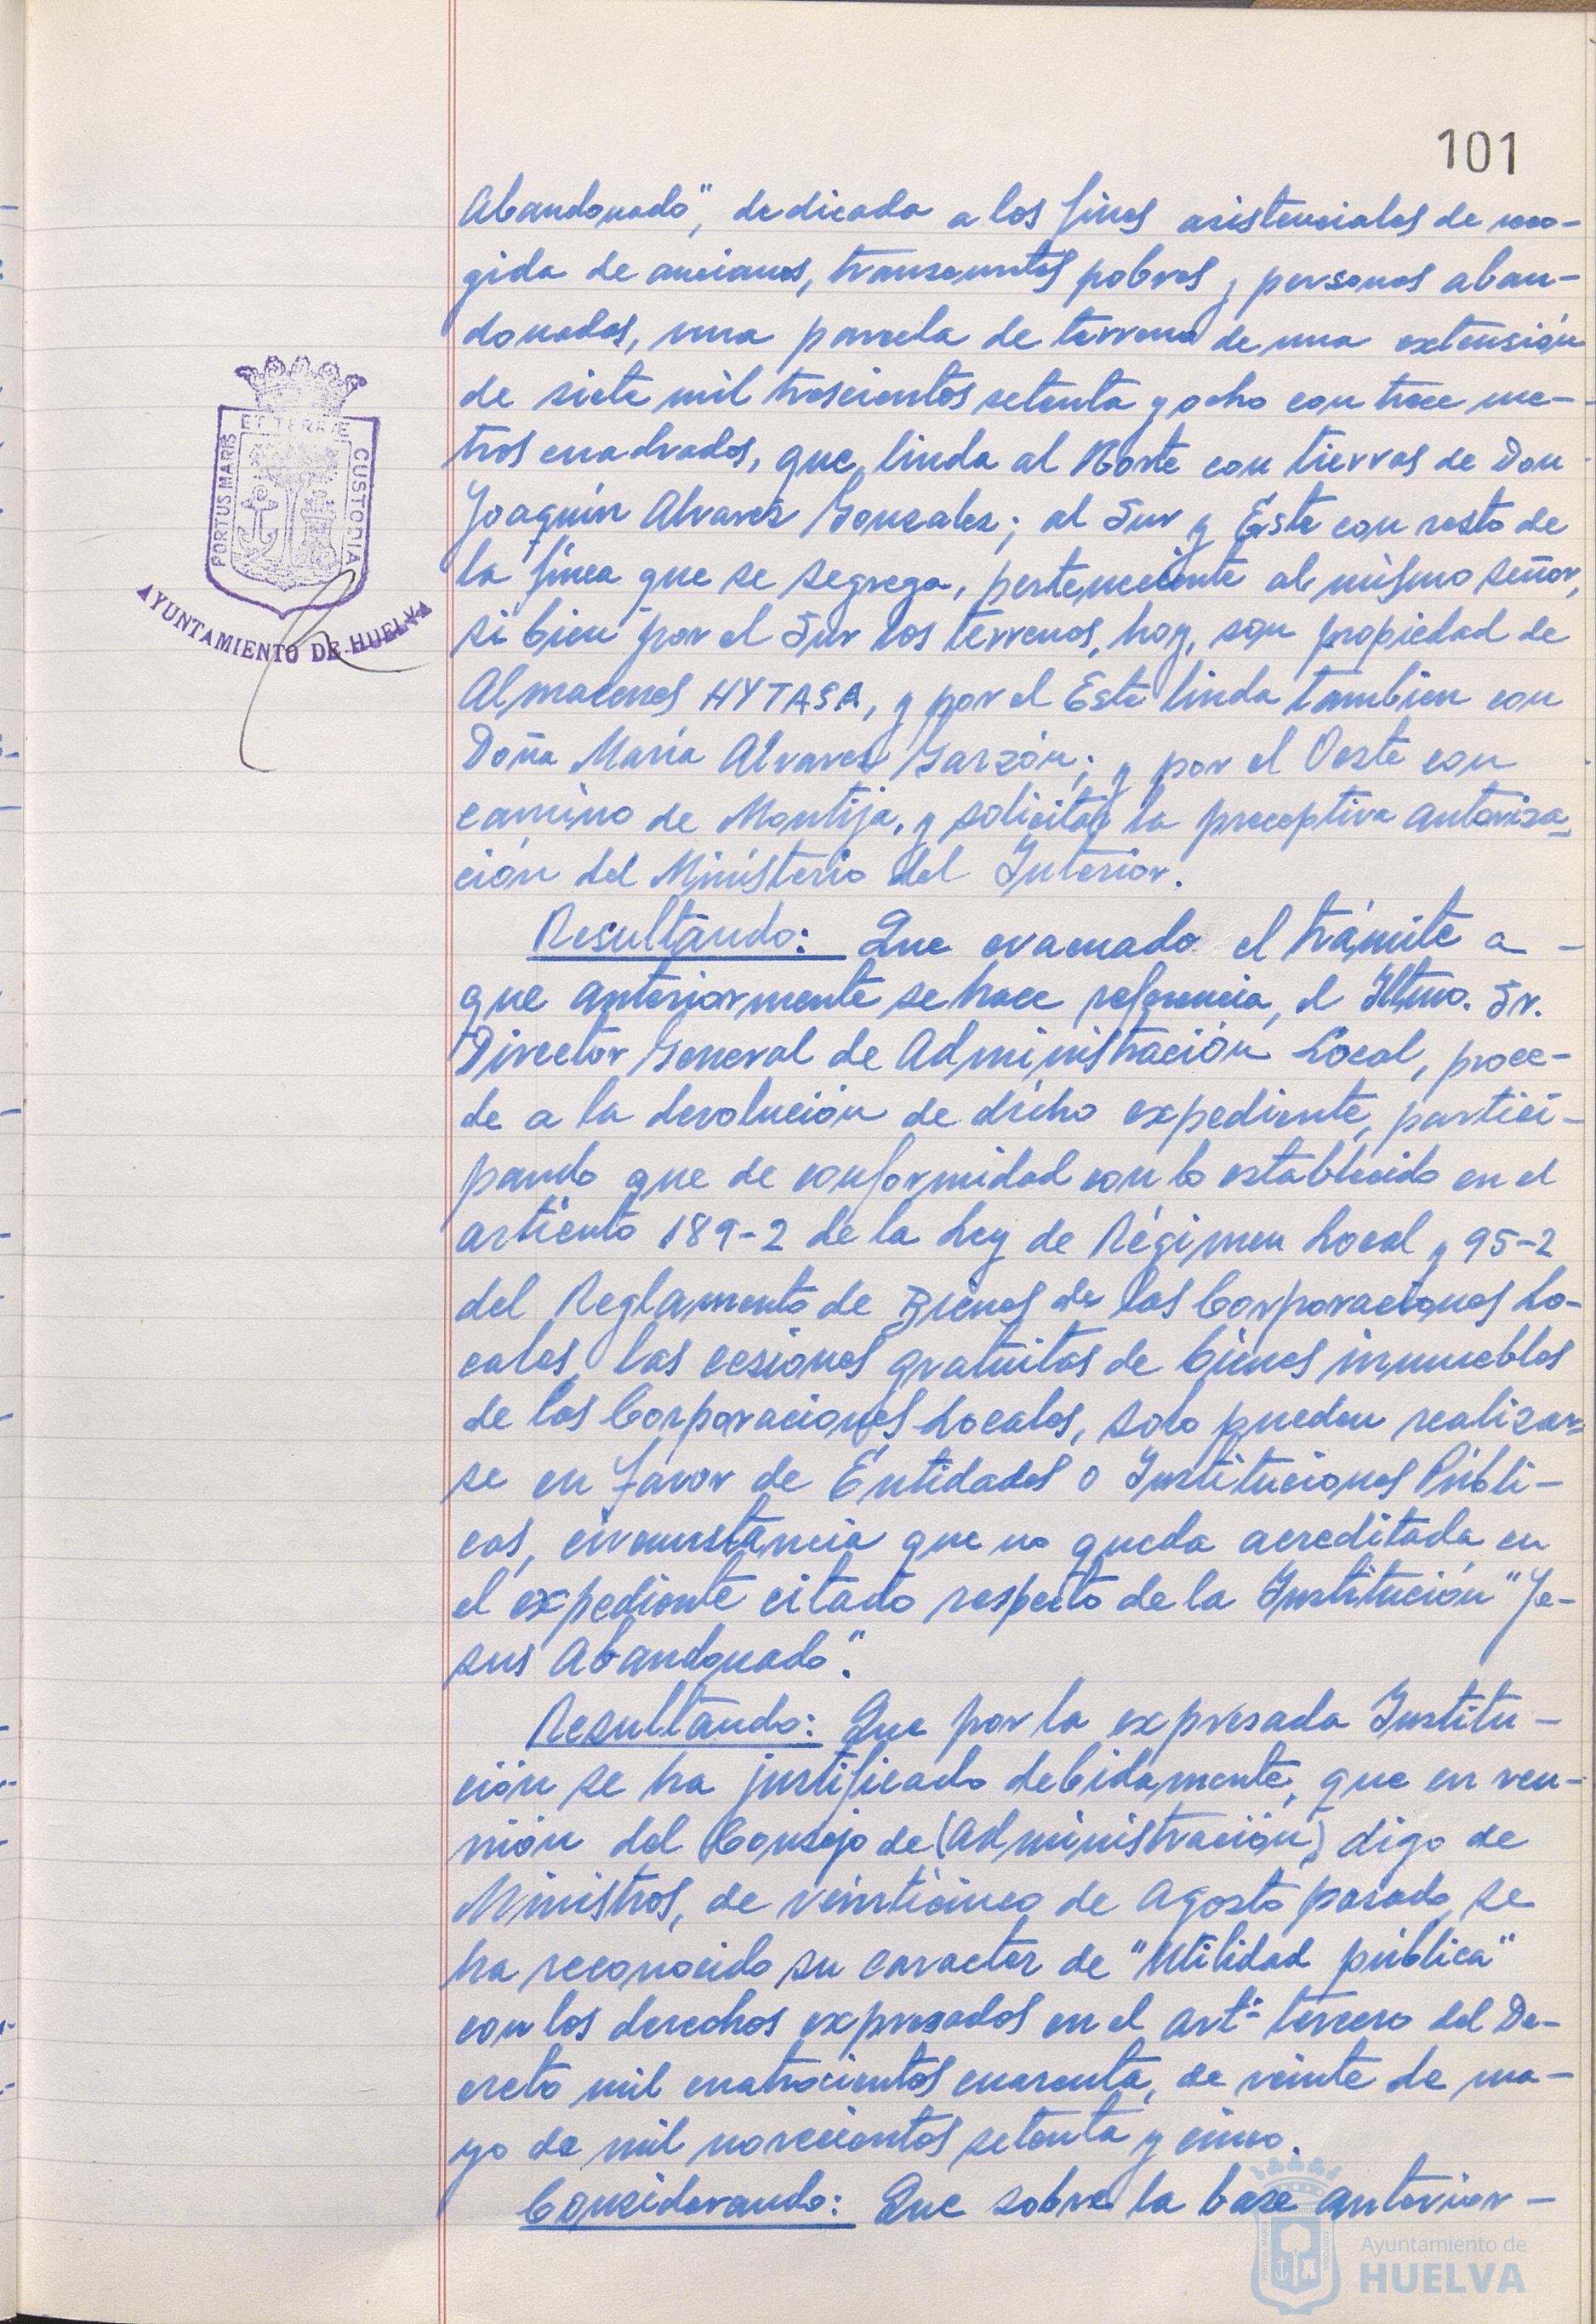 101
Abandonado", dedicada a los fines asistenciales de reco-
gida de ancianos, transeuntes pobres y personas aban-
donadas, una parcela de terreno de una extensión
de siete mil trescientos setenta y ocho con trece me-
tros cuadrados, que linda al Norte con tierras de Don
Joaquín Alvarez Gonzalez; al Sur y Este con resto de
la finca que se segrega, perteneciente al mismo señor,
si bien por el Sur los terrenos, hoy, son propiedad de
Almacenes HYTASA, y por el Este linda tambien con
Doña María Alvarez Garzón; y por el Oeste con
camino de Montija, y solicitar la preceptiva autoriza-
ción del Ministerio del Interior.
Resultando: Que evacuado el trámite a -
que anteriormente se hace referencia, el Iltmo. Sr.
Director General de Administración Local, proce-
de a la devolución de dicho expediente, partici-
pando que de conformidad con lo establecido en el
artículo 189-2 de la Ley de Régimen Local y 95-2
del Reglamento de Bienes de las Corporaciones Lo-
cales, las cesiones gratuitas de bienes inmuebles
de las Corporaciones Locales, solo pueden realizar-
se en favor de Entidades o Instituciones Públi-
cas, circunstancia que no queda acreditada en
el expediente citado respecto de la Institución "Je-
sus Abandonado".
Resultando: Que por la expresada Institu-
ción se ha justificado debidamente, que en reu-
nión del Consejo de (Administración) digo de
Ministros, de veinticinco de Agosto pasado, se
ha reconocido su caracter de "Utilidad pública"
con los derechos expresados en el artº tercero del De-
creto mil cuatrocientos cuarenta, de veinte de ma-
yo de mil novecientos setenta y cinco.
Considerando: Que sobre la base anterior-
PORTUS MARIS
ET TERRÆ
CUSTODIA
AYUNTAMIENTO DE HUELVA
Ayuntamiento de
HUELVA